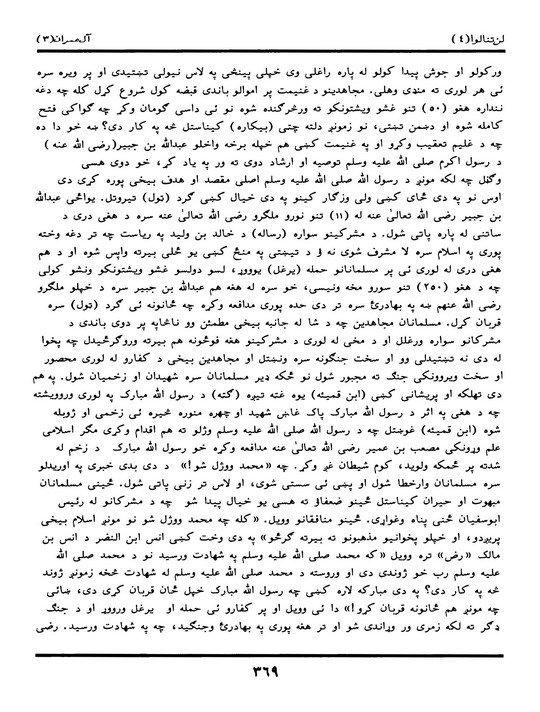 لن تنالوا (٤)
آل عمران (٣)
ورکولو او جوش پیدا کولو له پاره راغلی وی خپلی پینڅی په لاس نیولی تښتیدی او پر ویره سره
ئی هر لوری ته مندی وهلی. مجاهدینو د غنیمت پر اموالو باندی قبضه کول شروع کړل کله چه دغه
ننداره هغو (٥٠) تنو غشو ویشتونکو ته ورڅرگنده شوه نو ئی داسی گومان وکړ چه گواکی فتح
کامله شوه او دښمن تښتی، نو زمونږ دلته چتی (بیکاره) کیناستل څه په کار دی؟ ښه خو دا ده
چه د غلیم تعقیب وکړو او په غنیمت کښی هم خپله برخه واخلو عبدالله بن جبیر(رضی الله عنه )
د رسول اکرم صلی الله علیه وسلم توصیه او ارشاد دوی ته ور په یاد کړ، خو دوی هسی
وگڼل چه لکه مونږ د رسول الله صلی الله علیه وسلم اصلی مقصد او هدف بیخی پوره کړی دی
اوس نو په دی ځای کښی ولی وزگار کینو په دی خیال کښی گرد (ټول) تیروتل. یواځی عبدالله
بن جبیر رضی الله تعالیٰ عنه له (١١) تنو نورو ملگرو رضی الله تعالیٰ عنه سره د هغی دری د
ساتنی له پاره پاتی شول. د مشرکینو سواره (رساله) د خالد بن ولید په ریاست چه تر دغه وخته
پوری په اسلام سره لا مشرف شوی نه ؤ د تیښتی په منځ کښی یو ځلی بیرته واپس شوه او د هم
هغی دری له لوری ئی پر مسلمانانو حمله (یرغل) یووړ، لسو دولسو غشو ویشتونکو ونشو کولی
چه د هغو (٢٥٠) تنو سورو مخه ونیسی، خو سره له هغه هم عبدالله بن جبیر سره د خپلو ملگرو
رضی الله عنهم ښه په بهادرئ سره تر دی حده پوری مدافعه وکړه چه ځانونه ئی گرد (ټول) سره
قربان کړل. مسلمانان مجاهدین چه د شا له جانبه بیخی مطمئن وو ناڅاپه پر دوی باندی د
مشرکانو سواره ورغلل او د مخی له لوری د مشرکینو هغه فوځونه هم بیرته وروگرځیدل چه پخوا
له دی نه تښتیدلی وو او سخت جنگونه سره ونښتل او مجاهدین بیخی د کفارو له لوری محصور
او سخت ویروونکی جنگ ته مجبور شول نو ځکه ډیر مسلمانان سره شهیدان او زخمیان شول. په هم
دی تهلکه او پریشانی کښی (ابن قمیئه) یوه غټه تیږه (گټه) د رسول الله مبارک په لوری وروویشته
چه د هغی په اثر د رسول الله مبارک پاک غاښ شهید او چهره منوره څیره ئی زخمی او ژوبله
شوه (ابن قمیئه) غوښتل چه د رسول الله صلی الله علیه وسلم وژلو ته هم اقدام وکړی مگر اسلامی
علم وړونکی مصعب بن عمیر رضی الله تعالیٰ عنه مدافعه وکړه خو رسول الله مبارک د زخم له
شدته پر ځمکه ولوید، کوم شیطان غږ وکړ. چه «محمد ووژل شو!» د دی بدی خبری په اوریدلو
سره مسلمانان وارخطا شول او پښی ئی سستی شوی، او لاس تر زنی پاتی شول. ځینی مسلمانان
مبهوت او حیران کیناستل ځینو ضعفاؤ ته هسی یو خیال پیدا شو چه د مشرکانو له رئیس
ابوسفیان ځنی پناه وغواړی. ځینو منافقانو وویل. «کله چه محمد ووژل شو نو مونږ اسلام بیخی
پریږدو، او خپلو پخوانیو مذهبونو ته بیرته گرځو» په دی وخت کښی انس ابن النضر د انس بن
مالک «رض» تره وویل «که محمد صلی الله علیه وسلم په شهادت ورسید نو د محمد صلی الله
علیه وسلم رب خو ژوندی دی او وروسته د محمد صلی الله علیه وسلم له شهادت څخه زمونږ ژوند
څه په کار دی؟ په دی مبارکه لاره کښی چه رسول الله مبارک خپل ځان قربان کړی دی، ښائی
چه مونږ هم ځانونه قربان کړو!» دا ئی وویل او پر کفارو ئی حمله او یرغل وروړ او د جنگ
ډگر ته لکه زمری ور وړاندی شو او تر هغه پوری په بهادرئ وجنگید، چه په شهادت ورسید. رضی
٣٦٩